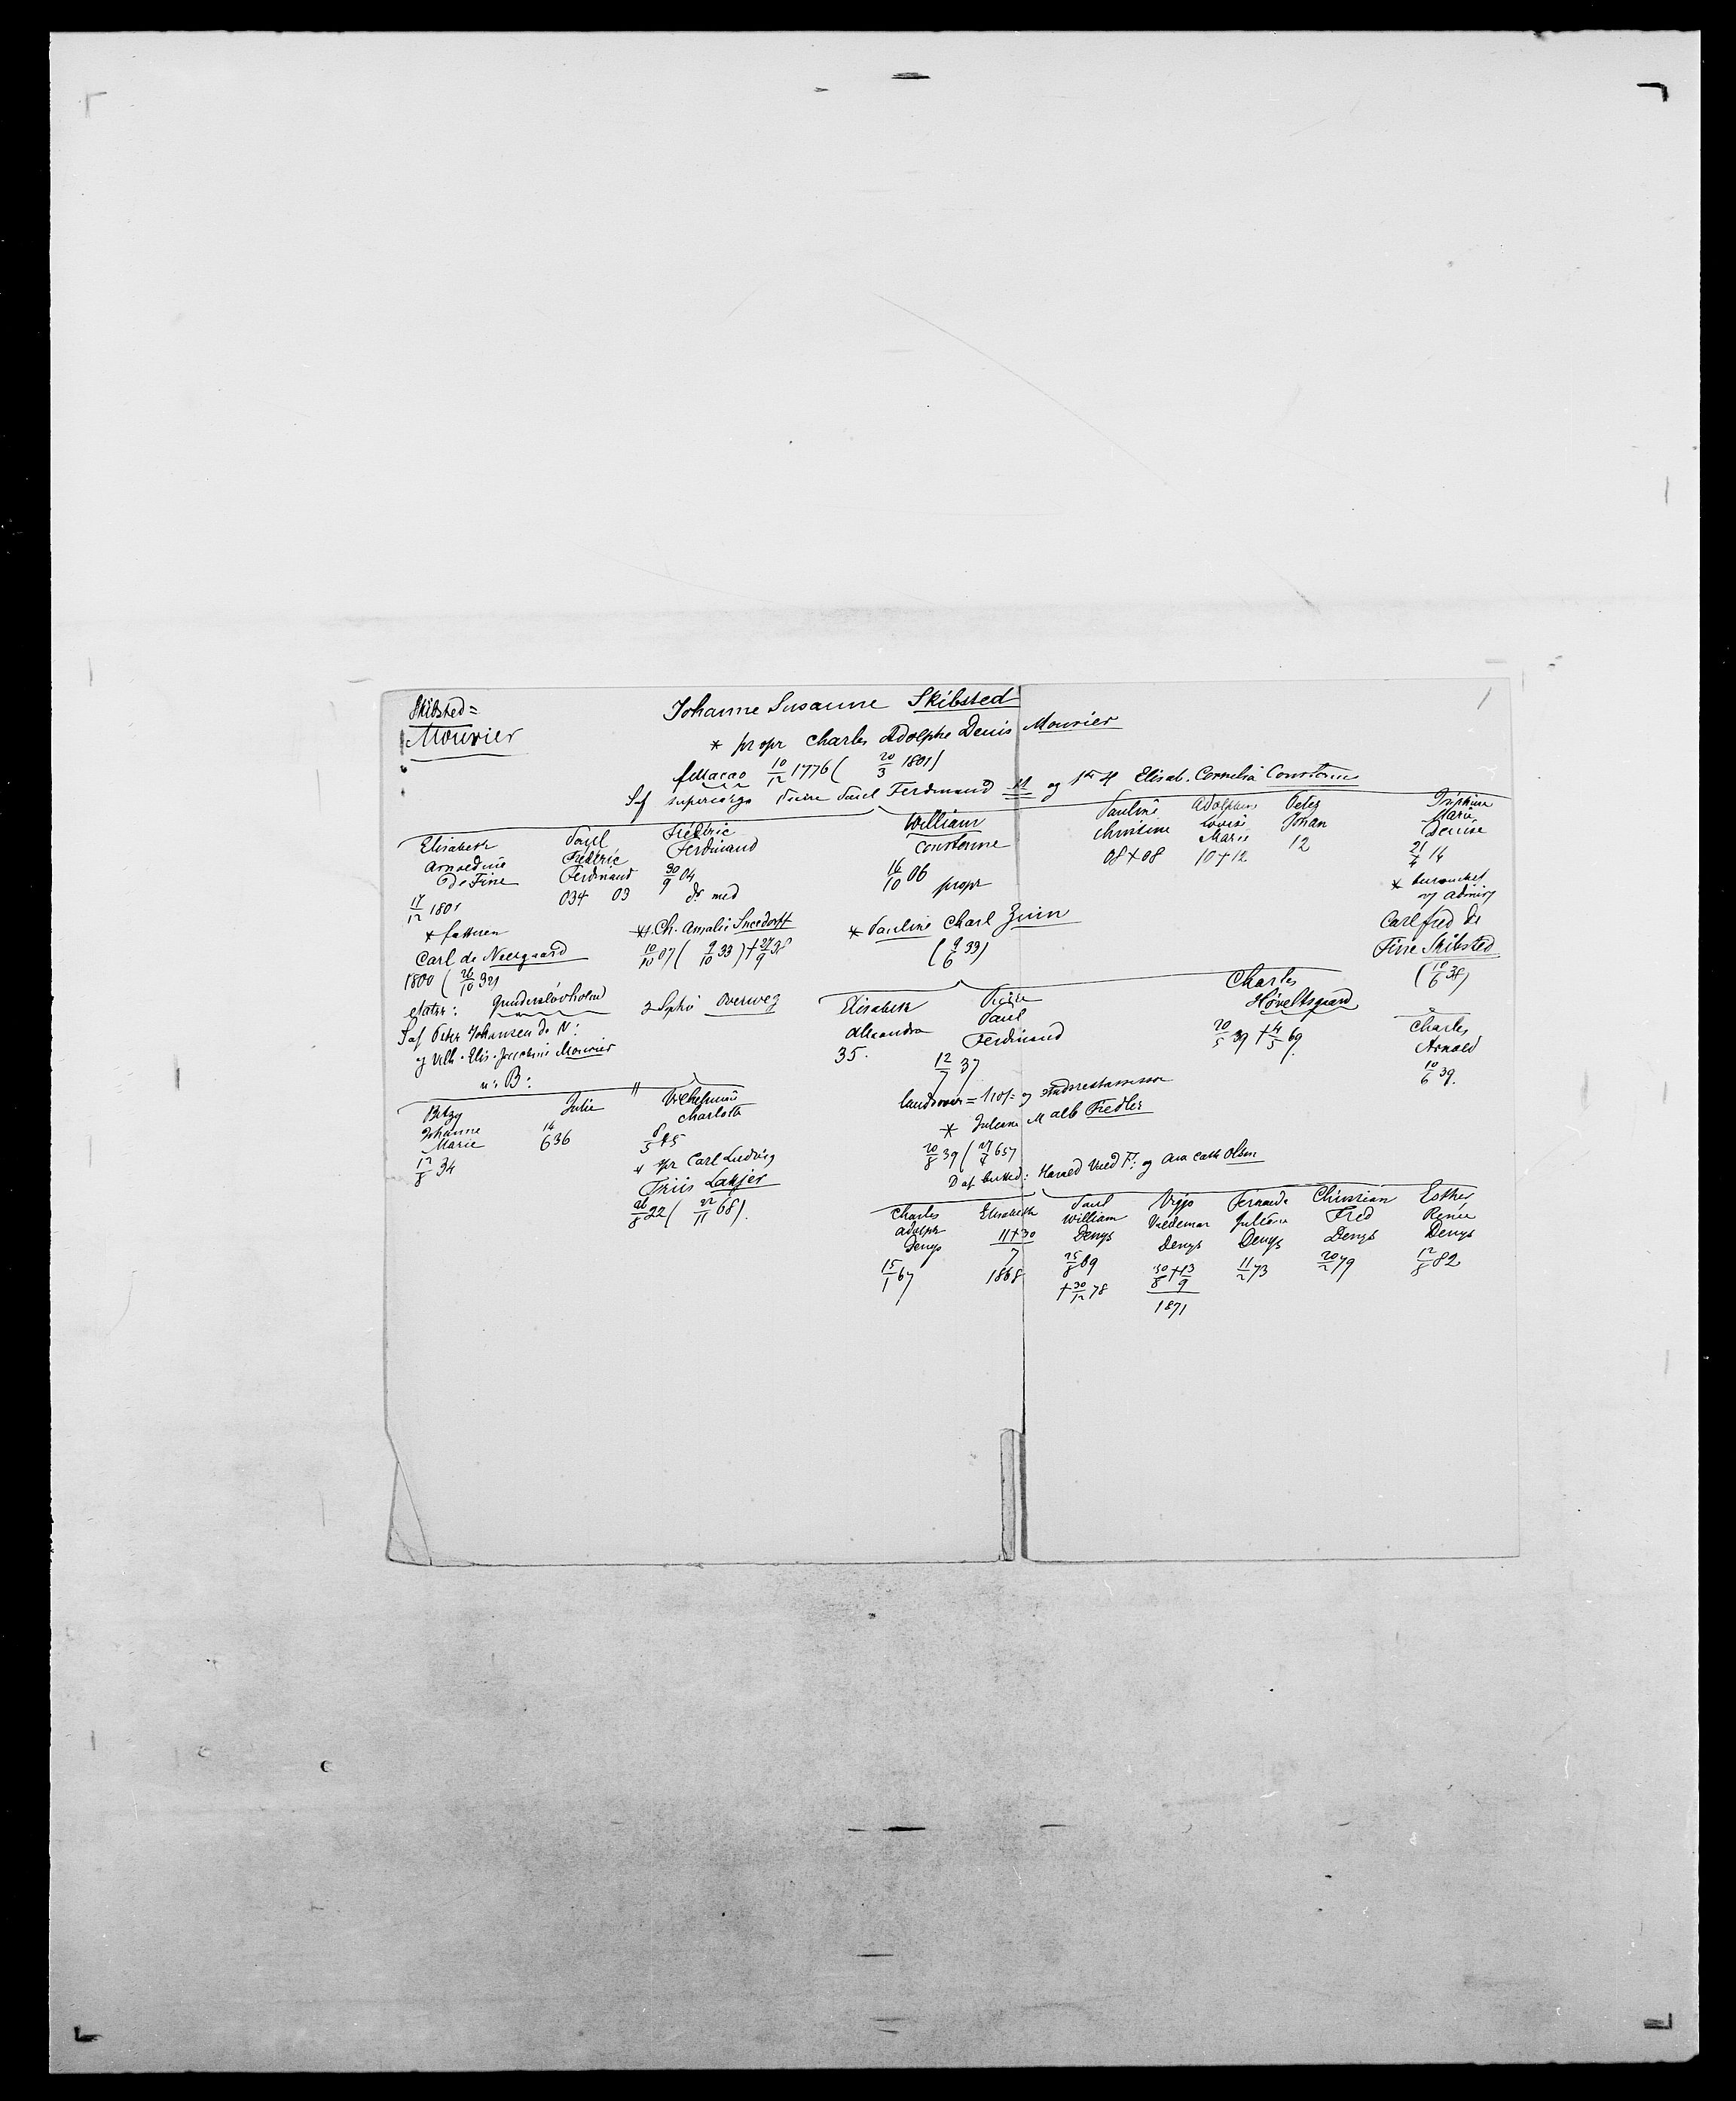 Skibsted=
Mourier
Johanne Susanne Skibsted
* propr Charles Adolphe Denis Mourier
f Macao 10/12 1776 ( 20/3 1801)
S af supercargo Pierre Paul Ferdinand M og 1ste H Elisab. Cornelia Constance
Elisabeth
Arnoldine
de Fine
17/12 1801
* fætteren
Carl de Neergaard
1800 ( 26/10 32)
etatsr: Gunderslevholm
S af Peter Johansen de N:
og Vilh. Elis. Jacobine Mourier
u: B:
Poul
Frédéric
Ferdinand
03 + 03
Frédéric
Ferdinand
30/9 04
dr med
*1. Ch. Amalie Sneedorff
10/10 07 ( 9/10 33) + 27/9 38
2 Sophi Overweg
William
Constance
16/10 06
propr
* Pauline Charl Zinn
( 9/6 33)
Pauline
Christine
08 + 08
Adolphine
Louise
Marie
10 + 12
Peter
Johan
12
Marie
Denise
21/4 14
* bureauchef
og
Carl Fred de
Fine Skibsted
( 10/6 38)
Charles
Arnold
10/6 39.
Elisabeth
Alexandra
35.
Pierre
Paul
Ferdinand
12/7 37
landsover= Hof= og
* Juliane M alb Fiedler
20/8 39 ( 27/4 65)
D af Harald Vald F: og Ana Cath Olsen
Charles
Høveltsgaard
20/5 39 + 4/5 69.
Betzy
Johanne
Marie
12/8 34
Julie
14/6 36
"
Vilhelmine
Charlotte
8/5 45
* pr Carl Ludvig
Thiis Lakjer
26/8 22 ( 22/11 68).
Charles
Adolph
Denys
15/1 67
Elisabeth
11 + 30
7
1868
Paul
William
Denys
25/8 69
+ 30/12 78
Viggo
Valdemar
Denys
30/8 + 13/9
1871
Fernanda
Juliane
Denys
11/2 73
Christian
Fred
Denys
20/2 79
Esther
Renée
Denys
12/8 82